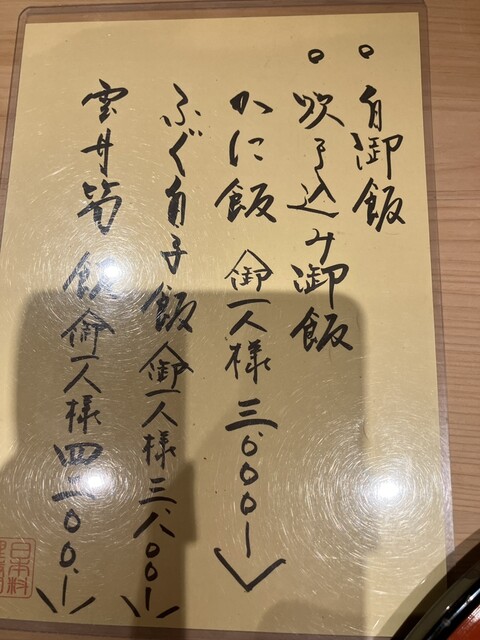 ○白御飯
○炊き込み御飯
かに飯 御一人様 三、〇〇〇ー
ふぐ白子飯 御一人様 三、八〇〇ー
雲丹筍飯 御一人様 四、二〇〇ー
日本料